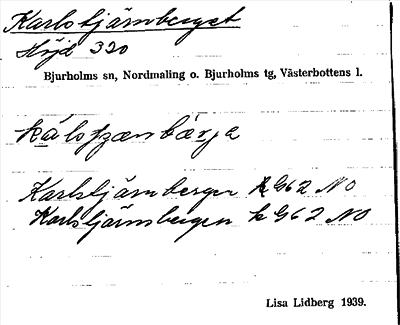 Karlstjärnberget
Höjd 320
Bjurholms sn, Nordmaling o. Bjurholms tg, Västerbottens l.
Karlstjärnbergen k G62 NO
Karlstjärnsbergen k G62 NO
Lisa Lidberg 1939.